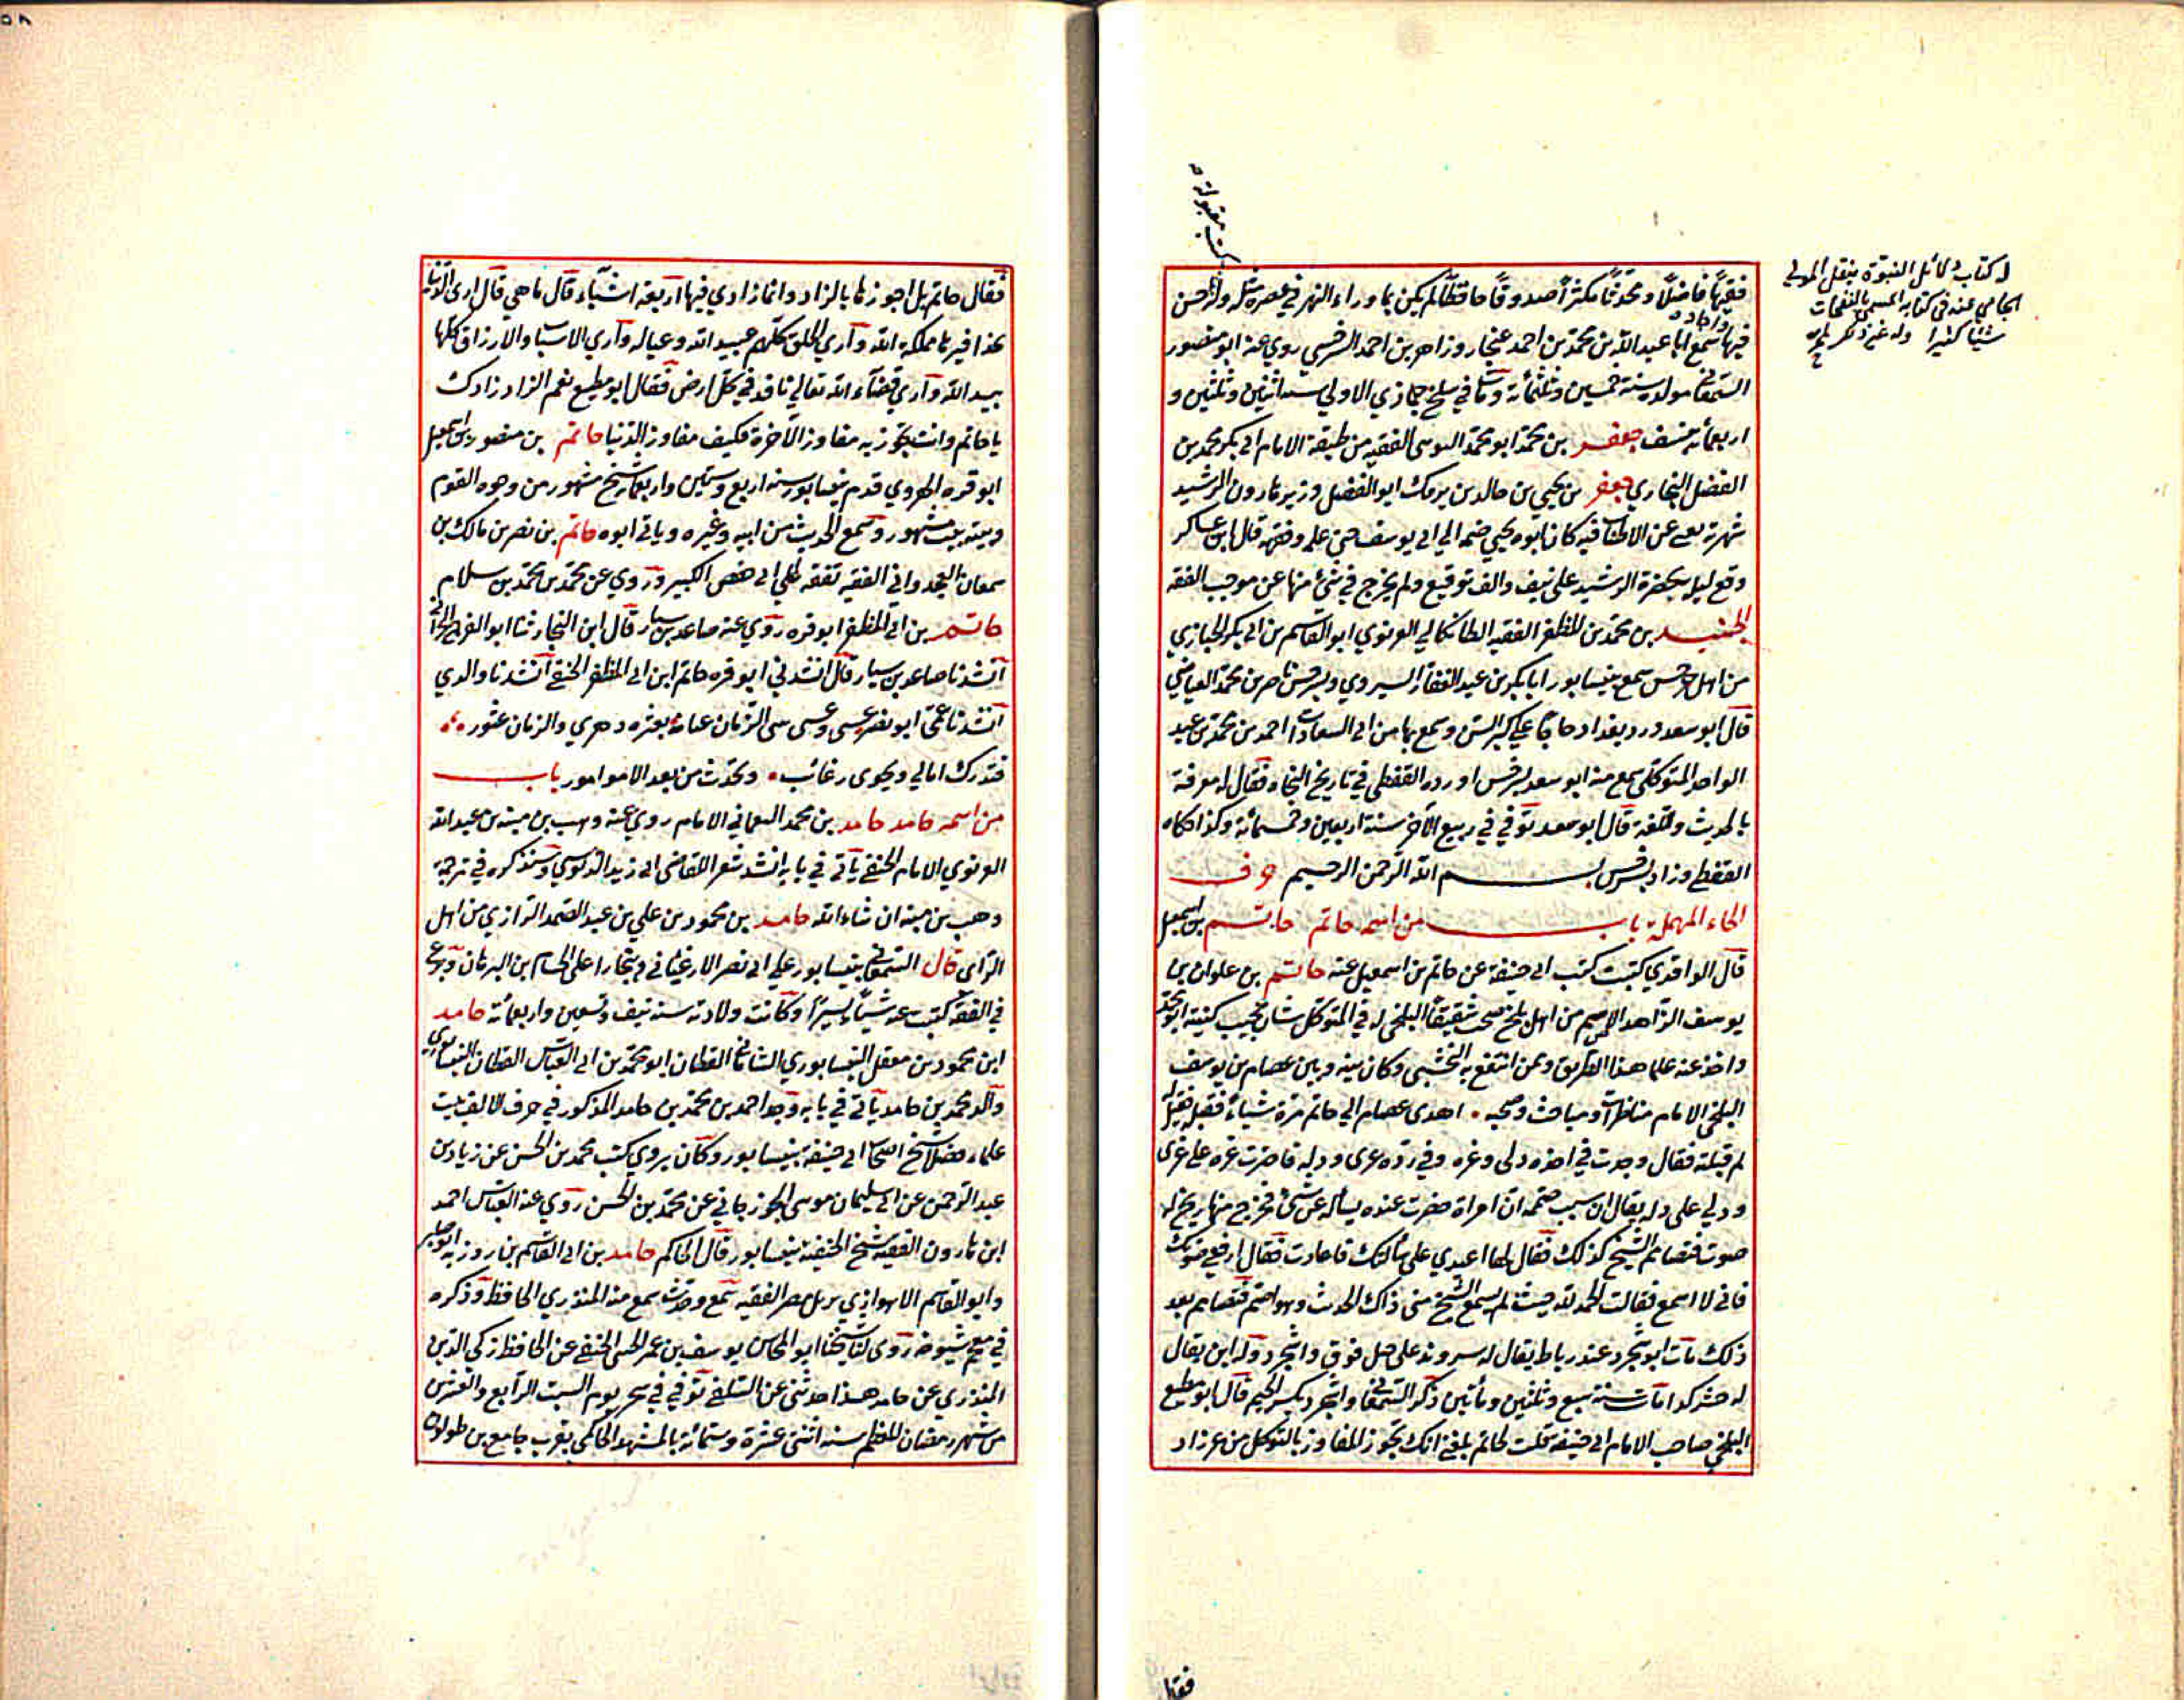 فقيهًا فاضلًا ومحدثًا مكثرًا صدوقًا حافظًا لم يكن بما وراء النهر في عصره مثله
فيها سمع ابا عبدالله بن محمد بن احمد غنجار وزاهر بن احمد السرخسي روي عنه ابو منصور
السمعاني مولده سنة خمسين وثلثمائة ومات في سلخ جمادي الاولي سنه اثنين وثلثين و
اربعمائه بنسف جعفر بن محمد ابو محمد الفقيه من طبقة الامام ابي بكر محمد بن
الفضل البخاري جعفر بن يحيي بن خالد بن برمك ابو الفضل وزير هارون الرشيد
شهرته تغني عن الاطناب فيه كان ابوه يحيي ضمه الي ابي يوسف حتي علمه وفقهه قال ابن عساكر
وقع ليلة بحضرة الرشيد علي نيف والف توقيع ولم يخرج في شئ منها عن موجب الفقه
الجنيد بن محمد بن المظفر الفقيه الطايكاني الغزنوي ابو القاسم بن ابي بكر الخبازي
من اهل سرخس سمع بنيسابور ابا بكر بن عبد الغفار الشيروي وبسرخس ناصر بن محمد العياضي
قال ابو سعد ورد بغداد حاجًا علي كبر السن وسمع بها من ابي السعادات احمد بن محمد بن عبد
الواحد المتوكلي سمع منه ابو سعد بسرخس اورده القفطي في تاريخ النحاه فقال له معرفة
بالحديث واللغة قال ابو سعد توفي في ربيع الآخر سنة اربعين وخمسمائة وكذا حكاه
القفطي وزاد بسرخس بسم الله الرحمن الرحيم حرف
الحاء المهملة باب من اسمه حاتم حاتم بن اسمعيل
قال الواقدي كتبت كتب ابي حنيفة عن حاتم بن اسمعيل عنه حاتم بن علوان بن
يوسف الزاهد الاصم من اهل بلخ صحب شقيقًا البلخي له في التوكل شان عجيب كنيته
واخذ عنه علما هذا الطريق وممن انتفع به النخشبي وكان بينه وبين عصام بن يوسف
البلخي الامام مناظرات ومباحث وصحبه اهدي عصام الي حاتم مرة شياء فقبله فقيل له
لم قبلته فقال وجدت في اخذه ذلي وعزه وفي رده عزي وذله فاخترت عزه علي عزي
وذلي علي ذله يقال ان سبب صممه ان امراة حضرت عنده يسأله عن شئ فخرج منها ريح له
صوت فتصامم الشيخ كذلك فقال لها اعيدي علي مسألتك فاعادت فقال ارفعي صوتك
فاني لا اسمع فقالت الحمد لله حيث لم يسمع الشيخ مني ذاك الحدث وهو اصم فتصامم بعد
ذلك مات بواشجرد عند رباط يقال له سروند علي جبل فوق واشجرد وله ابن يقال
له حشركدا مات سنة سبع وثلثين ومأتين ذكره السمعاني وواشجرد بكسر الجيم قال ابو مطيع
البلخي صاحب الامام ابي حنيفه قلت لحاتم بلغني انك تجوز المفاوز بالتوكل من غير زاد
له كتاب دلائل النبوة ينقل المولي
الجامي عنه في كتابه المسمي بالنفحات
شيئا كثيرا وله غير ذلك
كتب مقبولة
فقال
فقال حاتم بل اجوزها بالزاد وانما زادي فيها اربعة اشياء قال ما هي قال اري الدنيا
بحذافيرها مملكة الله واري الخلق كلهم عبيد الله وعياله واري الاسباب والارزاق كلها
بيد الله واري قضاء الله تعالي نافذ في كل ارض فقال ابو مطيع نعم الزاد زادك
يا حاتم وانت تجوز به مفاوز الآخرة فكيف مفاوز الدنيا حاتم بن منصور بن اسمعيل
ابو قره الهروي قدم نيسابور سنه اربع وستين واربعمائة شيخ مشهور من وجوه القوم
وبيته بيت مشهور وسمع الحديث من ابيه وغيره وياتي ابوه حاتم بن نصر بن مالك بن
سمعان الفقيه تفقه علي ابي حفص الكبير وروي عن محمد بن محمد بن سلام
حاتم بن ابي المظفر ابو قره روي عنه صاعد بن سيار قال ابن النجار ثنا ابو الفرج الحراني
انشدنا صاعد بن سيار قال انشدني ابو قره حاتم ابن ابي المظفر الحنفي انشدنا والدي
انشدنا عمي ابو نصر عسي وعسي يثني الزمان عنانه بعثرة دهري والزمان عثور
فتدرك امالي ويحوى رغائب ويحدث من بعد الامور امور باب
من اسمه حامد حامد بن محمد الامام روي عنه وهب بن منبه بن عبد الله
الغزنوي الامام الحنفي يأتي في بابه انشد شعر القاضي ابي زيد الدبوسي وسنذكره في ترجمة
وهب بن منبه ان شاء الله حامد بن محمود بن علي بن عبد الصمد الرازي من اهل
الراي قال السمعاني بنيسابور علي ابي نصر الارغياني وببخارا علي الحسام بن البرهان وبرع
في الفقه كتبت عنه شيأ يسيرًا وكانت ولادته سنه نيف وتسعين واربعمائة حامد
ابن محمود بن معقل النيسابوري القطان ابو محمد بن ابي العباس القطان النيسابوري
والد محمد بن حامد يأتي في بابه وجد احمد بن محمد بن حامد المذكور في حرف الالف بيت
علماء فضلا شيخ اصحاب ابي حنيفة بنيسابور وكان يروي كتب محمد بن الحسن عن زياد بن
عبد الرحمن عن ابي سليمان موسي الجوزجاني عن محمد بن الحسن روي عنه ابو العباس احمد
ابن هارون الفقيه شيخ الحنفية بنيسابور قال الحاكم حامد بن ابي القاسم بن روزبه
وابو القاسم الاهوازي نزيل مصر الفقيه سمع وحدث سمع منه المنذري الحافظ وذكره
في معجم شيوخه روي لنا شيخنا ابو المحاسن يوسف بن عمر الحنفي عن الحافظ زكي الدين
المنذري عن حامد هذا حدثني عن السلفي توفي في سحر يوم السبت الرابع والعشرين
من شهر رمضان المعظم سنه اثنتي عشرة وستمائة بالمشهد الحاكمي بقرب جامع بن طولون